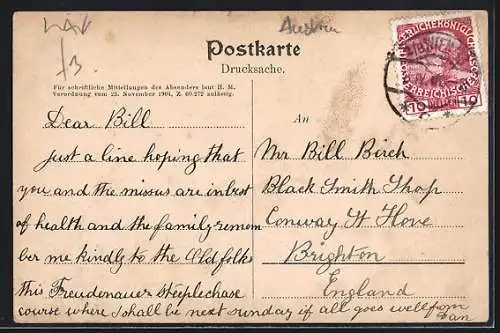 Austria
Postkarte
Drucksache.
Für schriftliche Mitteilungen des Absenders laut H. M.
Verordnung vom 25. November 1904, Z. 60.272 zulässig.
Dear Bill
just a line hoping that
you and the missus are in best
of health and the family remem
ber me kindly to the Old folks
this Freudenauer steeplechase
course where I shall be next sunday if all goes well from
Dan
An
Mr Bill Birch
Black Smith Shop
Conway St Hove
Brighton
England
10 10